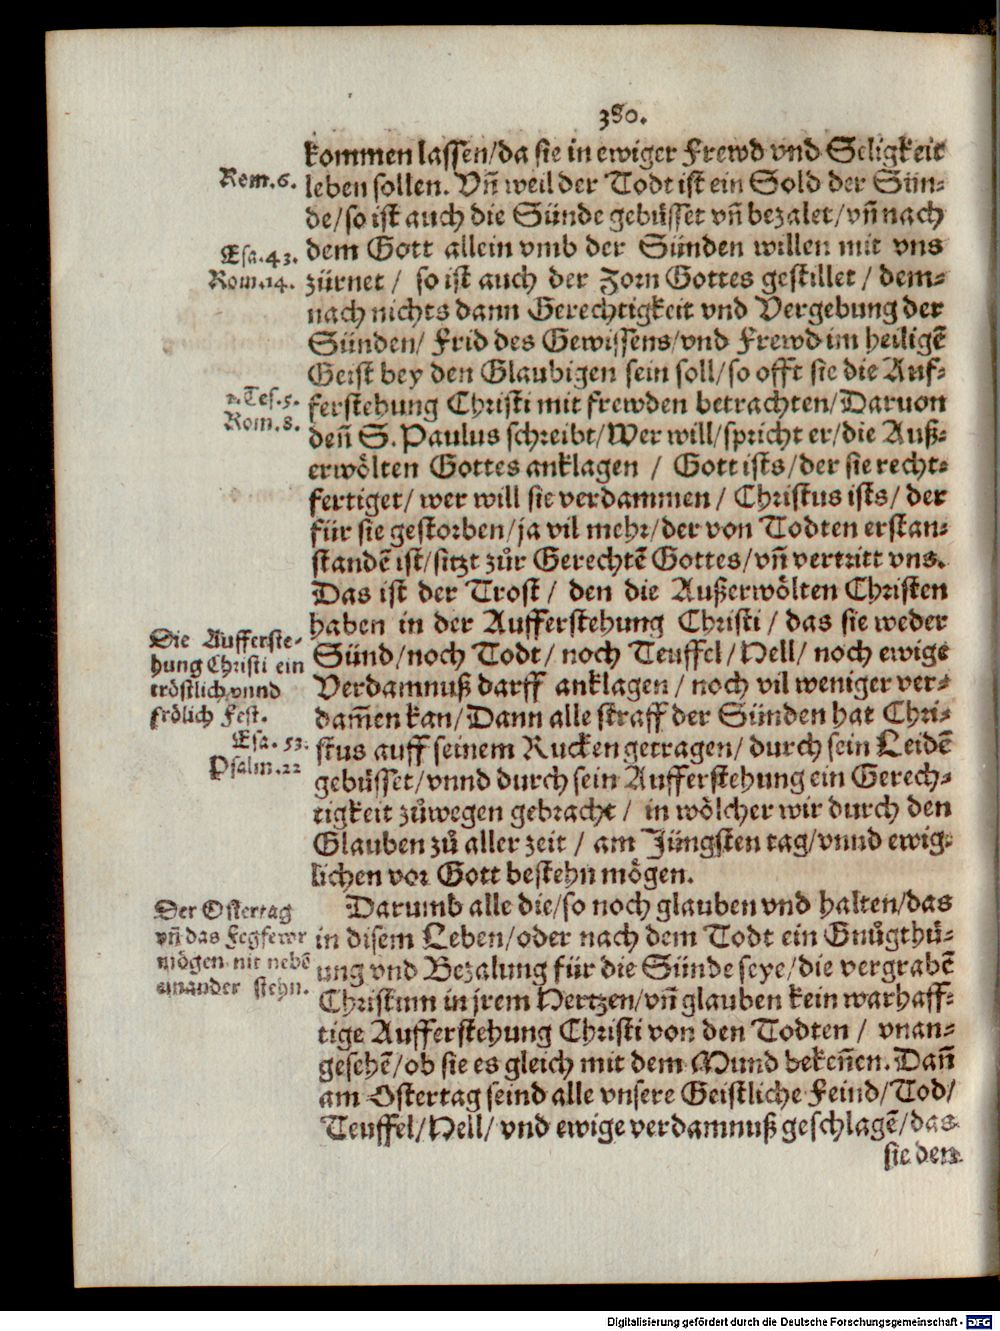 380.
kommen lassen/da sie in ewiger Frewd vnd Seligkeit
Rom.6.
leben sollen. Vñ weil der Todt ist ein Sold der Sün-
de/so ist auch die Sünde gebüsset vñ bezalet/vñ nach
Esa.43.
dem Gott allein vmb der Sünden willen mit vns
Rom.14.
zürnet / so ist auch der Zorn Gottes gestillet / dem-
nach nichts dann Gerechtigkeit vnd Vergebung der
Sünden/ Frid des Gewissens/vnd Frewd im heiligẽ
Geist bey den Glaubigen sein soll/so offt sie die Auf-
2.Tes.5.
ferstehung Christi mit frewden betrachten/Daruon
Rom.8.
deñ S. Paulus schreibt/Wer will/spricht er/die Auß-
erwölten Gottes anklagen / Gott ists/der sie recht-
fertiget/ wer will sie verdammen / Christus ists/ der
für sie gestorben/ja vil mehr/der von Todten erstan-
standẽ ist/sitzt zůr Gerechtẽ Gottes/vñ vertritt vns.
Das ist der Trost / den die Außerwölten Christen
haben in der Aufferstehung Christi / das sie weder
Die Aufferste-
hung Christi ein
tröstlich vnnd
frölich Fest.
Sünd/noch Todt/ noch Teuffel/Hell/ noch ewige
Verdamnuß darff anklagen / noch vil weniger ver-
dam̃en kan/Dann alle straff der Sünden hat Chri-
Esa. 53.
Psalm.22
stus auff seinem Rucken getragen/ durch sein Leidẽ
gebüsset/vnnd durch sein Aufferstehung ein Gerech-
tigkeit zůwegen gebracht / in wölcher wir durch den
Glauben zů aller zeit / am Jüngsten tag/vnnd ewig-
lichen vor Gott bestehn mögen.
Der Ostertag
vñ das Fegfewr
mögen nit nebẽ
einander stehn.
Darumb alle die/so noch glauben vnd halten/das
in disem Leben/oder nach dem Todt ein Gnůgthů-
ung vnd Bezalung für die Sünde seye/die vergrabẽ
Christum in jrem Hertzen/vñ glauben kein warhaff-
tige Aufferstehung Christi von den Todten / vnan-
gesehẽ/ob sie es gleich mit dem Mund bekeñen. Dañ
am Ostertag seind alle vnsere Geistliche Feind/Tod/
Teuffel/Hell/ vnd ewige verdamnuß geschlagẽ/das
sie den
Digitalisierung gefördert durch die Deutsche Forschungsgemeinschaft - DFG